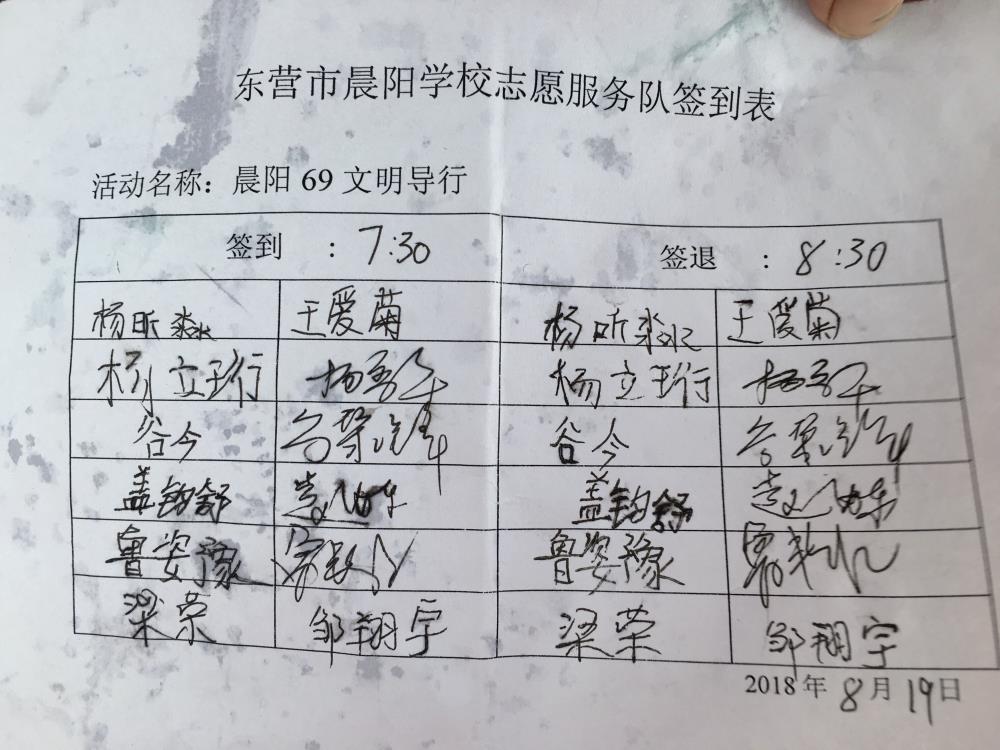 东营市晨阳学校志愿服务队签到表
活动名称：晨阳 69 文明导行
签到 ：7:30 签退 ：8:30
杨昕淼 王爱菊 杨昕淼 王爱菊
杨立珩 杨立珩
谷今 谷今
盖钧舒 盖钧舒
鲁姿豫 鲁姿豫
梁荣 邹翔宇 梁荣 邹翔宇
2018 年 8 月 19 日